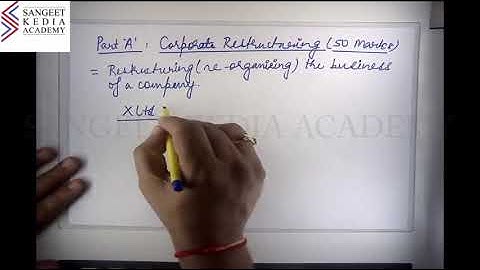 SANGEET
KEDIA
ACADEMY
Part 'A' : Corporate Restructuering (50 Marks)
= Restructuring (re-organising) the business
of a company.
X Ltd
SANGEET KEDIA ACADEMY